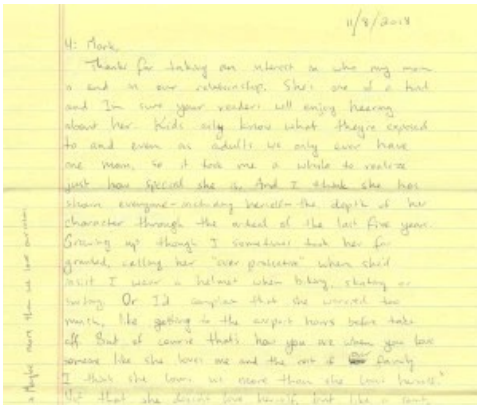 11/8/2018
Hi Mark,
Thanks for taking an interest in who my mom
is and in our relationship. She's one of a kind
and I'm sure your readers will enjoy hearing
about her. Kids only know what they're exposed
to and even as adults we only ever have
one mom, so it took me a while to realize
just how special she is. And I think she has
shown everyone - including herself - the depth of her
character through the ordeal of the last five years.
Growing up though I sometimes took her for
granted, calling her "over protective" when she'd
insist I wear a helmet when biking, skating or
Or I'd complain that she worried too
much, like getting to the airport hours before take
off. But of course that's how you are when you love
someone like she loves me and the rest of our family
I think she loves us more than she loves herself.*
Not that she doesn't love herself, but like a
* Maybe more than we love ourselves.